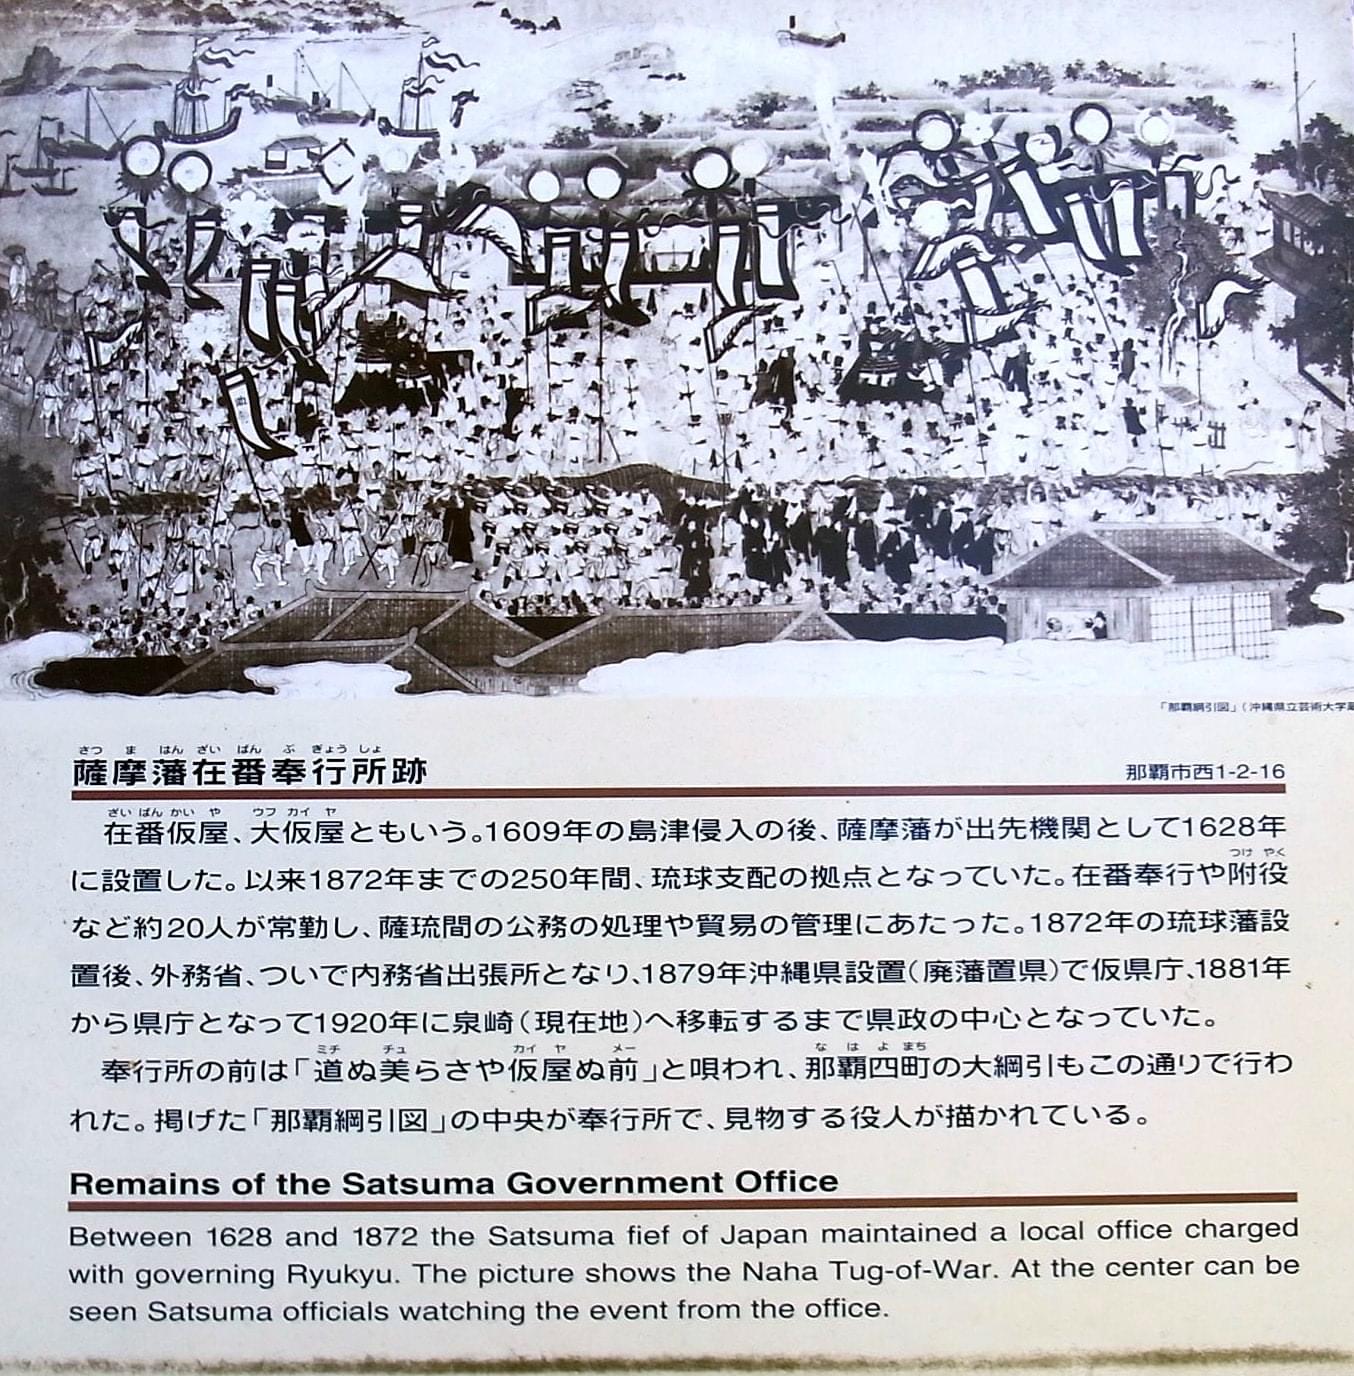 「那覇綱引図」(沖縄県立芸術大学蔵
さつ ま はん ざい ばん ぶ ぎょう しょ
薩摩藩在番奉行所跡
那覇市西1-2-16
ざい ばん かい や ウフ カイ ヤ
在番仮屋、大仮屋ともいう。1609年の島津侵入の後、薩摩藩が出先機関として1628年
つけ やく
に設置した。以来1872年までの250年間、琉球支配の拠点となっていた。在番奉行や附役
など約20人が常勤し、薩琉間の公務の処理や貿易の管理にあたった。1872年の琉球藩設
置後、外務省、ついで内務省出張所となり、1879年沖縄県設置(廃藩置県)で仮県庁、1881年
から県庁となって1920年に泉崎(現在地)へ移転するまで県政の中心となっていた。
ミチ チュ カイ ヤ メー な は よ まち
奉行所の前は「道ぬ美らさや仮屋ぬ前」と唄われ、那覇四町の大綱引もこの通りで行わ
れた。掲げた「那覇綱引図」の中央が奉行所で、見物する役人が描かれている。
Remains of the Satsuma Government Office
Between 1628 and 1872 the Satsuma fief of Japan maintained a local office charged
with governing Ryukyu. The picture shows the Naha Tug-of-War. At the center can be
seen Satsuma officials watching the event from the office.